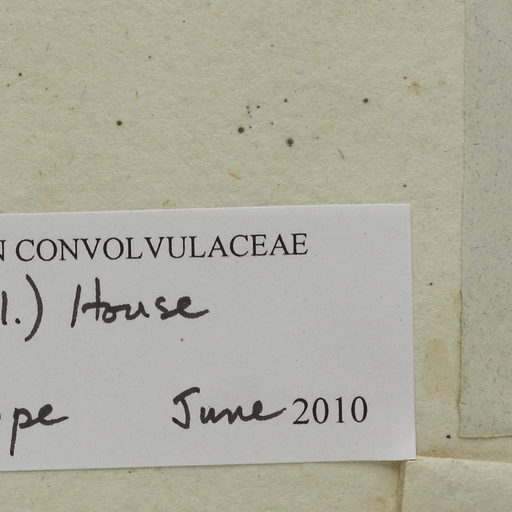 N CONVOLVULACEAE
l.) House
pe June 2010